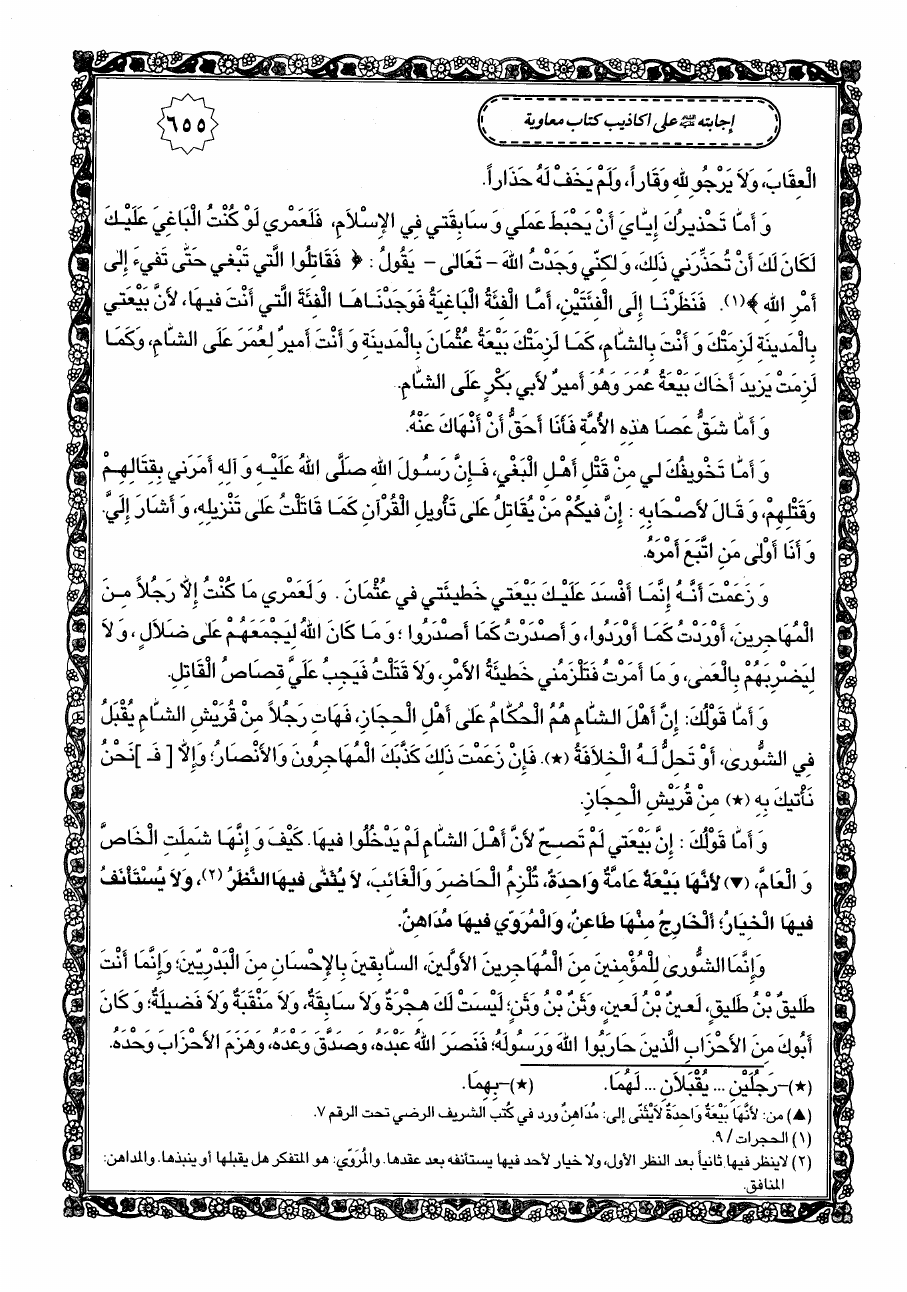 إجابته عليه السلام على اكاذيب كتاب معاوية
٦٥٥
الْعِقَابَ، وَلاَ يَرْجُو لِلّٰهِ وَقَاراً، وَلَمْ يَخَفْ لَهُ حَذَاراً.
وَ أَمَّا تَحْذيرُكَ إِيَّايَ أَنْ يَحْبَطَ عَمَلي وَ سَابِقَتي فِي الإِسْلاَمِ، فَلَعَمْري لَوْ كُنْتُ الْبَاغِيَ عَلَيْكَ
لَكَانَ لَكَ أَنْ تُحَذِّرَني ذَلِكَ، وَلكِنّي وَجَدْتُ اللهَ - تَعَالى - يَقُولُ: ﴿ فَقَاتِلُوا الَّتي تَبْغي حَتّى تَفيءَ إِلى
أَمْرِ اللهِ ﴾(١). فَنَظَرْنَا إِلَى الْفِئَتَيْنِ، أَمَّا الْفِئَةُ الْبَاغِيَةُ فَوَجَدْنَاهَا الْفِئَةَ الَّتي أَنْتَ فيهَا، لأَنَّ بَيْعَتي
بِالْمَدينَةِ لَزِمَتْكَ وَ أَنْتَ بِالشَّامِ، كَمَا لَزِمَتْكَ بَيْعَةُ عُثْمَانَ بِالْمَدينَةِ وَ أَنْتَ أَميرٌ لِعُمَرَ عَلَى الشَّامِ، وَكَمَا
لَزِمَتْ يَزيدَ أَخَاكَ بَيْعَةُ عُمَرَ وَهُوَ أَميرٌ لأَبي بَكْرٍ عَلَى الشَّامِ.
وَ أَمَّا شَقُّ عَصَا هذِهِ الأُمَّةِ فَأَنَا أَحَقُّ أَنْ أَنْهَاكَ عَنْهُ.
وَ أَمَّا تَخْويفُكَ لي مِنْ قَتْلِ أَهْلِ الْبَغْيِ، فَإِنَّ رَسُولَ اللهِ صَلَّى اللهُ عَلَيْهِ وَ آلِهِ أَمَرَني بِقِتَالِهِمْ
وَقَتْلِهِمْ، وَ قَالَ لأَصْحَابِهِ : إِنَّ فيكُمْ مَنْ يُقَاتِلُ عَلى تَأْويلِ الْقُرْآنِ كَمَا قَاتَلْتُ عَلى تَنْزيلِهِ، وَ أَشَارَ إِلَيَّ.
وَ أَنَا أَوْلى مَنِ اتَّبَعَ أَمْرَهُ.
وَ زَعَمْتَ أَنَّهُ إِنَّمَا أَفْسَدَ عَلَيْكَ بَيْعَتي خَطيئَتي في عُثْمَانَ . وَ لَعَمْري مَا كُنْتُ إِلاَّ رَجُلاً مِنَ
الْمُهَاجِرينَ، أَوْرَدْتُ كَمَا أَوْرَدُوا، وَ أَصْدَرْتُ كَمَا أَصْدَرُوا ؛ وَ مَا كَانَ اللهُ لِيَجْمَعَهُمْ عَلى ضَلاَلٍ، وَ لاَ
لِيَضْرِبَهُمْ بِالْعَمى، وَ مَا أَمَرْتُ فَتَلْزَمُني خَطيئَةُ الأَمْرِ، وَلاَ قَتَلْتُ فَيَجِبُ عَلَيَّ قِصَاصُ الْقَاتِلِ.
وَ أَمَّا قَوْلُكَ: إِنَّ أَهْلَ الشَّامِ هُمُ الْحُكَّامُ عَلى أَهْلِ الْحِجَازِ، فَهَاتِ رَجُلاً مِنْ قُرَيْشِ الشَّامِ يُقْبَلُ
فِي الشُّورى، أَوْ تَحِلُّ لَهُ الْخِلاَفَةُ (★). فَإِنْ زَعَمْتَ ذَلِكَ كَذَّبَكَ الْمُهَاجِرُونَ وَالأَنْصَارُ؛ وَإِلاَّ [ فَـ ]نَحْنُ
نَأْتيكَ بِهِ (★) مِنْ قُرَيْشِ الْحِجَازِ.
وَ أَمَّا قَوْلُكَ : إِنَّ بَيْعَتي لَمْ تَصِحّ لأَنَّ أَهْلَ الشَّامِ لَمْ يَدْخُلُوا فيهَا. كَيْفَ وَ إِنَّهَا شَمِلَتِ الْخَاصَّ
وَ الْعَامَّ، (▼) لأَنَّهَا بَيْعَةٌ عَامَّةٌ وَاحِدَةٌ، تُلْزِمُ الْحَاضِرَ وَالْغَائِبَ، لاَ يُثَنّى فيهَا النَّظَرُ (٢)، وَلاَ يُسْتَأْنَفُ
فيهَا الْخِيَارُ؛ اَلْخَارِجُ مِنْهَا طَاعِنٌ، وَالْمُرَوّي فيهَا مُدَاهِنٌ.
وَإِنَّمَا الشُّورى لِلْمُؤْمِنينَ مِنَ الْمُهَاجِرينَ الأَوَّلينَ، السَّابِقينَ بِالإِحْسَانِ مِنَ الْبَدْرِيّينَ؛ وَإِنَّمَا أَنْتَ
طَليقُ بْنُ طَليقٍ، لَعينُ بْنُ لَعينٍ، وَثَنُ بْنُ وَثَنٍ؛ لَيْسَتْ لَكَ هِجْرَةٌ وَلاَ سَابِقَةٌ، وَلاَ مَنْقَبَةٌ وَلاَ فَضيلَةٌ؛ وَ كَانَ
أَبُوكَ مِنَ الأَحْزَابِ الَّذينَ حَارَبُوا اللهَ وَرَسُولَهُ؛ فَنَصَرَ اللهُ عَبْدَهُ، وَصَدَّقَ وَعْدَهُ، وَهَزَمَ الأَحْزَابَ وَحْدَهُ.
(★)-رَجُلَيْنِ ... يُقْبَلاَنِ ... لَهُمَا. (★)-بِهِمَا.
(▲) من: لأَنَّهَا بَيْعَةٌ وَاحِدَةٌ لاَيُثَنّى إلى: مُدَاهِنٌ ورد في كُتب الشريف الرضي تحت الرقم ٧.
(١) الحجرات / ٩.
(٢) لاينظر فيها ثانياً بعد النظر الأول، ولا خيار لأحد فيها يستأنفه بعد عقدها. والمُرَوّي: هو المتفكر هل يقبلها أو ينبذها. والمداهن:
المنافق.